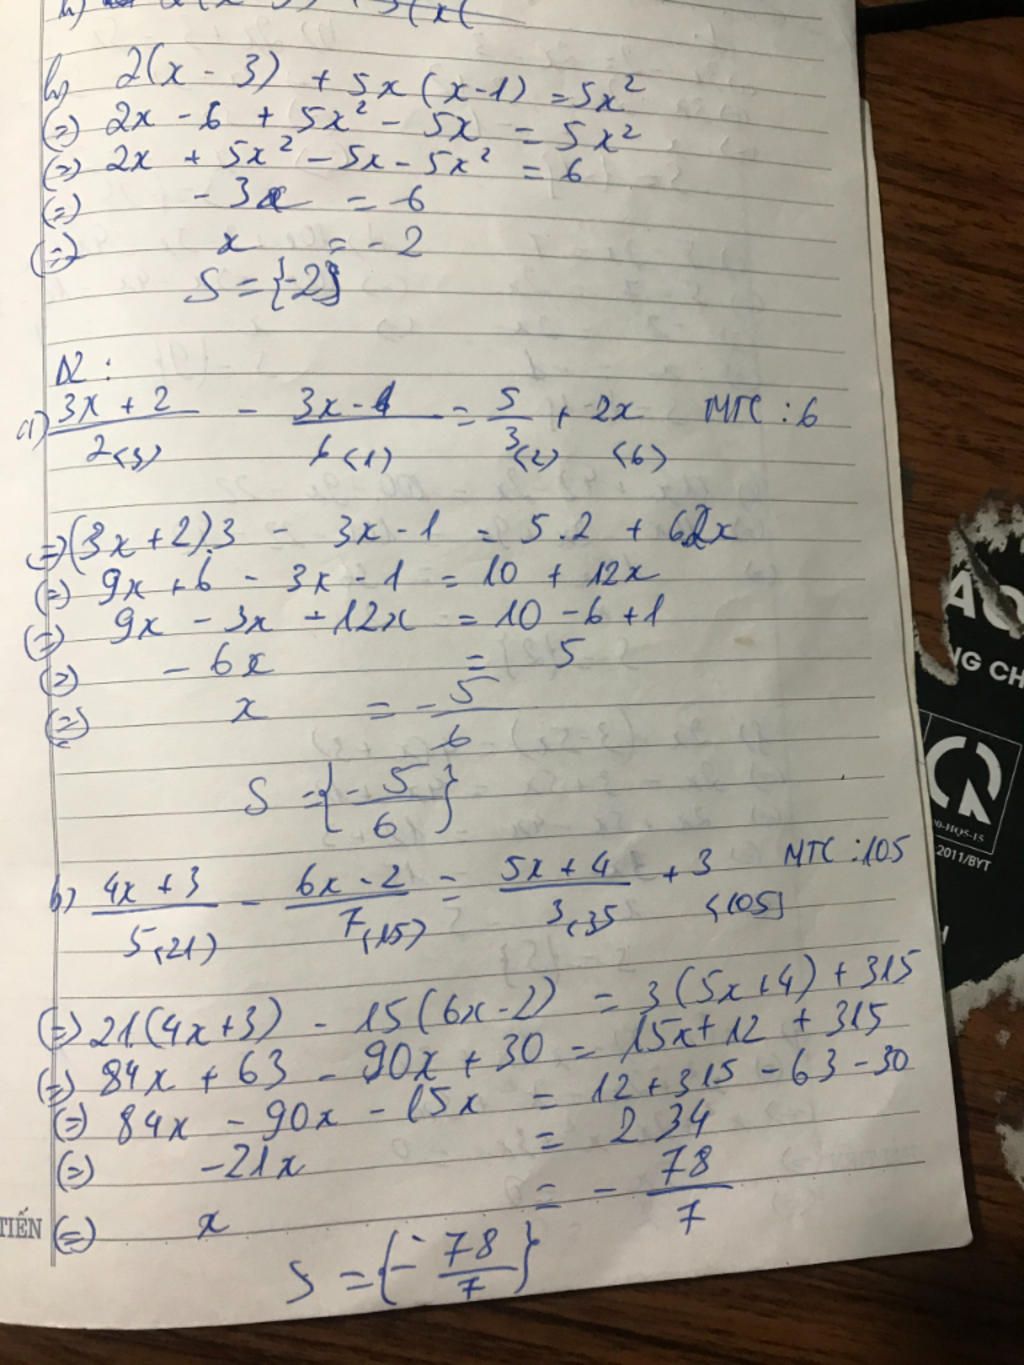 h) 2(x - 3) + 5x(x-1) = 5x²
(=) 2x - 6 + 5x² - 5x = 5x²
(=) 2x + 5x² - 5x - 5x² = 6
(=) - 3x = 6
(=) x = - 2
S = {-2}
a) (3x + 2)/2(3) - (3x - 1)/6(1) = 5/3(2) + 2x (6) MTC : 6
=) (3x + 2).3 - 3x - 1 = 5.2 + 6.2x
(=) 9x + 6 - 3x - 1 = 10 + 12x
(=) 9x - 3x - 12x = 10 - 6 + 1
(=) - 6x = 5
(=) x = - 5/6
S = {- 5/6}
b) (4x + 3)/5(21) - (6x - 2)/7(15) = (5x + 4)/3(35 + 3 (105) MTC : 105
(=) 21.(4x+3) - 15(6x-2) = 3(5x+4) + 315
(=) 84x + 63 - 90x + 30 = 15x + 12 + 315
(=) 84x - 90x - 15x = 12 + 315 - 63 - 30
(=) -21x = 234
(=) x = - 78/7
S = {- 78/7}
TIẾN
NG CH
00-HQ5-15
2011/BYT